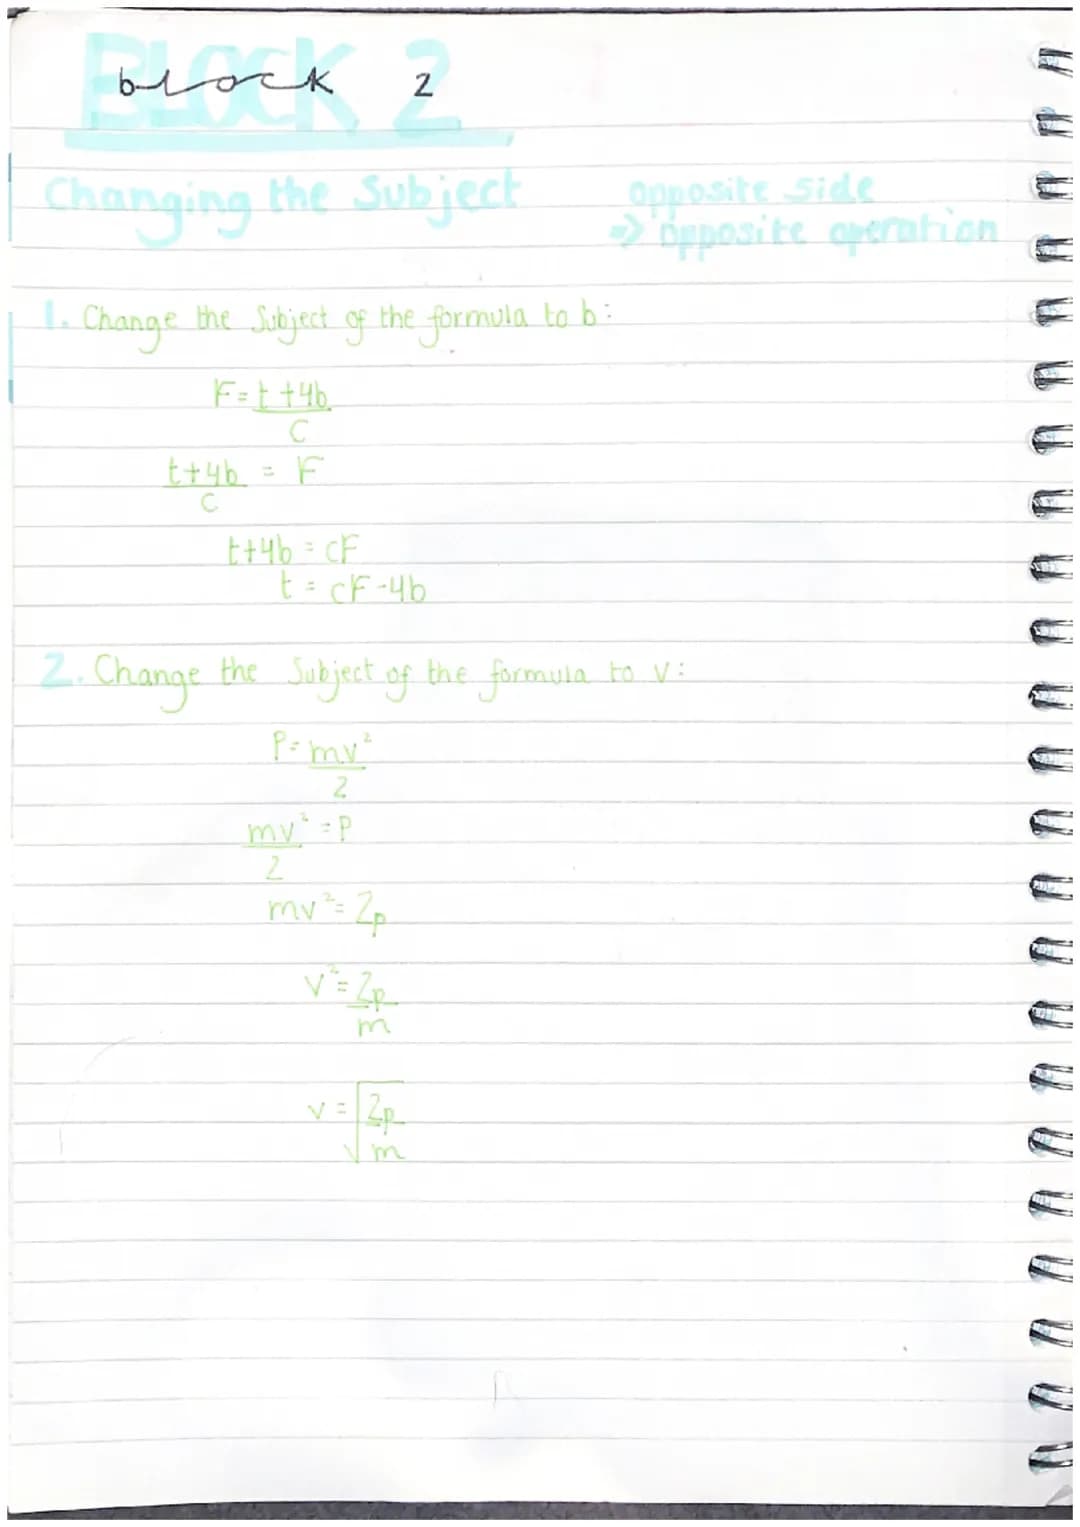 BLOCK 2
block 2
Changing the Subject
opposite side
=> opposite operation
1. Change the Subject of the formula to b:
F = t + 4b
C
t + 4b = F
C
t + 4b = cF
t = cF - 4b
2. Change the Subject of the formula to v:
P = mv²
2
mv² = P
2
mv² = 2p
v² = 2p
m
v = √2p
m